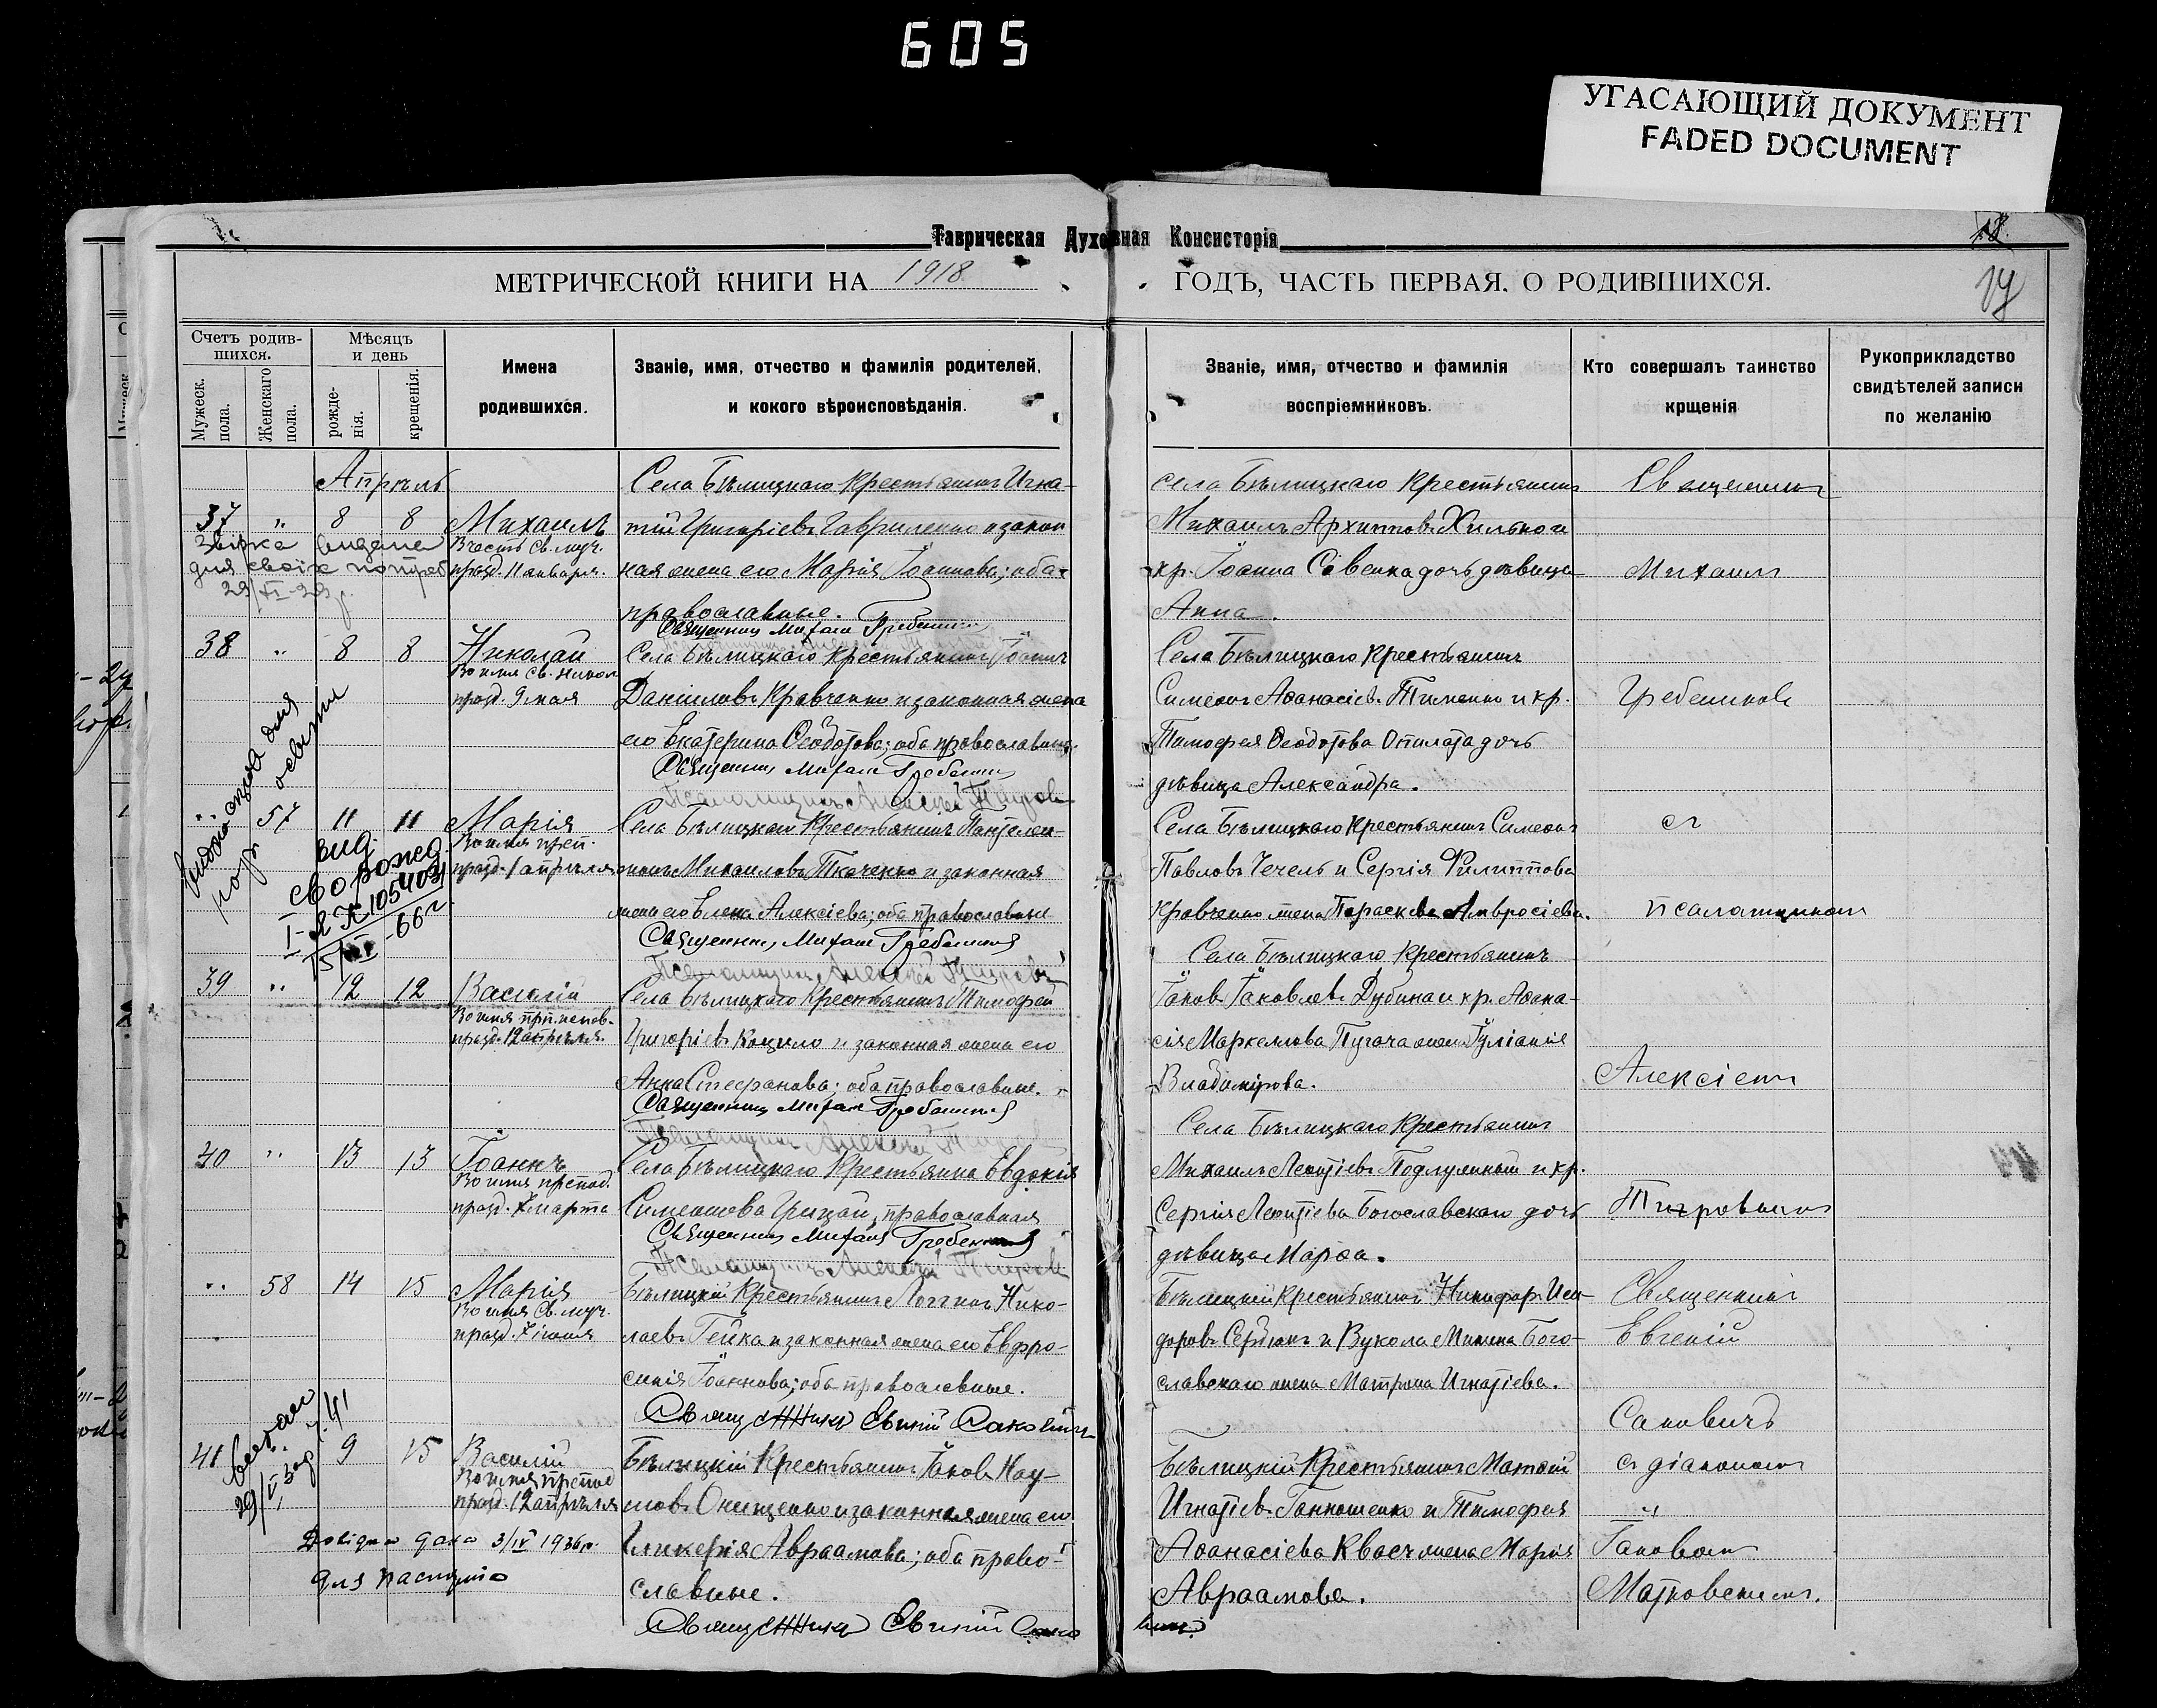 605
УГАСАЮЩИЙ ДОКУМЕНТ
FADED DOCUMENT
Таврическая Духовная Консисторія
18.
МЕТРИЧЕСКОЙ КНИГИ НА 1918 ГОДЪ, ЧАСТЬ ПЕРВАЯ. О РОДИВШИХСЯ.
17
Счетъ родив-
шихся.
Мужеск. пола.
Женскаго пола.
Мѣсяцъ
и день
рожде-
нія.
крещенія.
Имена
родившихся.
Званіе, имя, отчество и фамилія родителей,
и кокого вѣроисповѣданія.
Званіе, имя, отчество и фамилія
воспріемниковъ.
Кто совершалъ таинство
крщенія
Рукоприкладство
свидѣтелей записи
по желанію
Апрѣль
37 " 8 8 Михаилъ
В честь Св. муч.
празд. 11 января.
29/XI-29 р.
Села Бѣлицкаго Крестьянинъ Игна-
тій Григоріевъ Гавриленко и закон
ная жена его Марія Іоаннова; оба
православные.
Священникъ Михаилъ Гребенниковъ
Села Бѣлицкаго Крестьянинъ
Михаилъ Архиповъ Хилько и
кр. Іоанна Савенка дочь дѣвица
Анна.
Священникъ
Михаилъ
Гребенниковъ
съ
псаломщикомъ
Алексіемъ
Тигровымъ
38 " 8 8 Николай
Во имя Св. Никол
празд. 9 мая
Села Бѣлицкаго Крестьянинъ Іоаннъ
Даніиловъ Кравченко и законная жена
его Екатерина Ѳеодотова; оба православные.
Священникъ Михаилъ Гребенниковъ
Псаломщикъ Алексѣй Тигровъ
Села Бѣлицкаго Крестьянинъ
Симеонъ Аѳанасіевъ Тименко и кр.
Тимофея Ѳеодотова Опилата дочь
дѣвица Александра.
" 57 11 11 Марія
Во имя преп.
празд. 1 апрѣля
вид.
св о рожд.
I-ЯК 105403
-66 г.
Села Бѣлицкаго Крестьянинъ Пантелей-
монъ Михаиловъ Ткаченко и законная
жена его Елена Алексіева; оба православные
Священникъ Михаилъ Гребенниковъ
Псаломщикъ Алексѣй Тигровъ
Села Бѣлицкаго Крестьянинъ Симеонъ
Павловъ Чечель и Сергія Филиппова
Кравченко жена Параскева Амвросіева.
39 " 12 12 Василій
Во имя прп. испов.
празд. 12 апрѣля.
Села Бѣлицкаго Крестьянинъ Тимофей
Григоріевъ Кацило и законная жена его
Анна Стефанова; оба православные.
Священникъ Михаилъ Гребенниковъ
Села Бѣлицкаго Крестьянинъ
Іаковъ Іаковлевъ Дубина и кр. Аѳана-
сія Маркеллова Пугача жена Іуліанія
Владимірова.
40 " 13 13 Іоаннъ
Во имя препод.
празд. 7 марта
Села Бѣлицкаго Крестьянка Евдокія
Симеонова Грицай, православная
Священникъ Михаилъ Гребенниковъ
Псаломщикъ Алексѣй Тигровъ
Села Бѣлицкаго Крестьянинъ
Михаилъ Леонтіевъ Подлужный и кр.
Сергія Леонтіева Богославскаго дочь
дѣвица Марѳа.
" 58 14 15 Марія
Во имя Св. муч.
празд. 7 іюня
Бѣлицкій Крестьянинъ Логгинъ Нико-
лаевъ Гейка и законная жена его Евфро-
синія Іоаннова; оба православные.
Священникъ Евгеній Саковичъ
Бѣлицкій Крестьянинъ Никифоръ Иси-
доровъ Сердюкъ и Вукола Минина Бого-
славскаго жена Матрона Игнатіева.
Священникъ
Евгеній
Саковичъ
съ діакономъ
Іаковомъ
Матковскимъ.
41 " 9 15 Василій
Во имя препод
празд. 12 апрѣля
Довідка дана 3/IV 1936 р.
для паспорта
Бѣлицкій Крестьянинъ Іаковъ Нау-
мовъ Онищенко и законная жена его
Гликерія Авраамова; оба право-
славные.
Священникъ Евгеній Саковичъ
Бѣлицкій Крестьянинъ Матѳій
Игнатіевъ Ганношенко и Тимофея
Аѳанасіева Квасъ жена Марія
Авраамова.